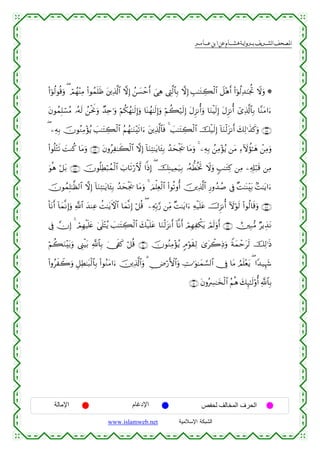 المصحف الشريف برواية هشام عن ابن عامر
۞ وَلَا تُجَٰدِلُوٓا۟ أَهْلَ ٱلْكِتَٰبِ إِلَّا بِٱلَّتِى هِىَ أَحْسَنُ إِلَّا ٱلَّذِينَ ظَلَمُوا۟ مِنْهُمْ ۖ وَقُولُوٓا۟
ءَامَنَّا بِٱلَّذِىٓ أُنزِلَ إِلَيْنَا وَأُنزِلَ إِلَيْكُمْ وَإِلَٰهُنَا وَإِلَٰهُكُمْ وَٰحِدٌ وَنَحْنُ لَهُۥ مُسْلِمُونَ
﴿٤٦﴾ وَكَذَٰلِكَ أَنزَلْنَآ إِلَيْكَ ٱلْكِتَٰبَ ۚ فَٱلَّذِينَ ءَاتَيْنَٰهُمُ ٱلْكِتَٰبَ يُؤْمِنُونَ بِهِۦ ۖ
وَمِنْ هَٰٓؤُلَآءِ مَن يُؤْمِنُ بِهِۦ ۚ وَمَا يَجْحَدُ بِـَٔايَٰتِنَآ إِلَّا ٱلْكَٰفِرُونَ ﴿٤٧﴾ وَمَا كُنتَ تَتْلُوا۟
مِن قَبْلِهِۦ مِن كِتَٰبٍ وَلَا تَخُطُّهُۥ بِيَمِينِكَ ۖ إِذًا لَّٱرْتَابَ ٱلْمُبْطِلُونَ ﴿٤٨﴾ بَلْ هُوَ
ءَايَٰتٌۢ بَيِّنَٰتٌ فِى صُدُورِ ٱلَّذِينَ أُوتُوا۟ ٱلْعِلْمَ ۚ وَمَا يَجْحَدُ بِـَٔايَٰتِنَآ إِلَّا ٱلظَّٰلِمُونَ
﴿٤٩﴾ وَقَالُوا۟ لَوْلَآ أُنزِلَ عَلَيْهِ ءَايَٰتٌ مِّن رَّبِّهِۦ ۖ قُلْ إِنَّمَا ٱلْـَٔايَٰتُ عِندَ ٱللَّهِ وَإِنَّمَآ أَنَا۠
نَذِيرٌ مُّبِينٌ ﴿٥٠﴾ أَوَلَمْ يَكْفِهِمْ أَنَّآ أَنزَلْنَا عَلَيْكَ ٱلْكِتَٰبَ يُتْلَىٰ عَلَيْهِمْ ۚ إِنَّ فِى
ذَٰلِكَ لَرَحْمَةً وَذِكْرَىٰ لِقَوْمٍ يُؤْمِنُونَ ﴿٥١﴾ قُلْ كَفَىٰ بِٱللَّهِ بَيْنِى وَبَيْنَكُمْ
شَهِيدًا ۖ يَعْلَمُ مَا فِى ٱلسَّمَٰوَٰتِ وَٱلْأَرْضِ ۗ وَٱلَّذِينَ ءَامَنُوا۟ بِٱلْبَٰطِلِ وَكَفَرُوا۟
بِٱللَّهِ أُو۟لَٰٓئِكَ هُمُ ٱلْخَٰسِرُونَ ﴿٥٢﴾
الحرف المخالف لحفص الإدغام الإمالة
الشبكة الإسلامية www.islamweb.net